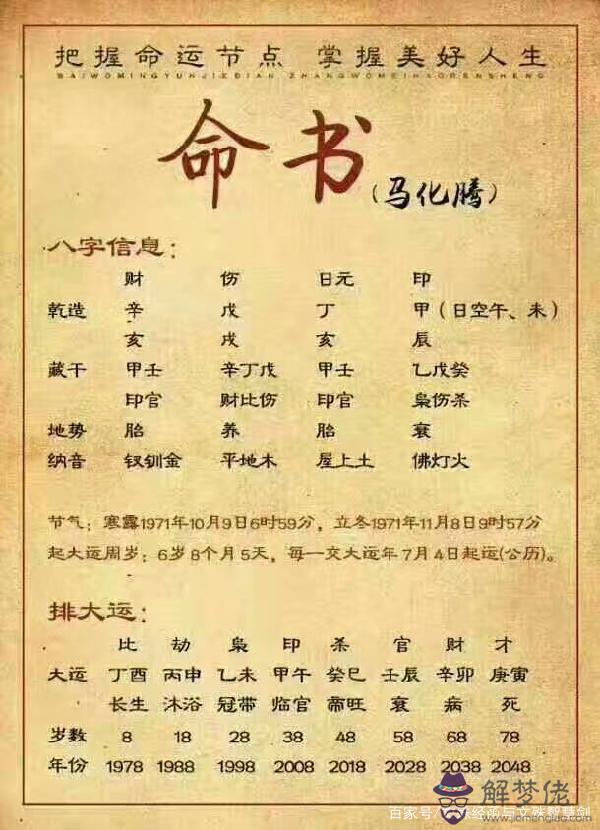 把握命运节点 掌握美好人生
BAIWOMINGYUNJIEDIAN ZHANGWOMEIHAORENSHENG
命书
(马化腾)
八字信息:
财 伤 日元 印
乾造 辛 戊 丁 甲(日空午、未)
亥 戌 亥 辰
藏干 甲壬 辛丁戊 甲壬 乙戊癸
印官 财比伤 印官 枭伤杀
地势 胎 养 胎 衰
纳音 钗钏金 平地木 屋上土 佛灯火
节气: 寒露1971年10月9日6时59分, 立冬1971年11月8日9时57分
起大运周岁: 6岁8个月5天, 每一交大运年7月4日起运(公历)。
排大运:
比 劫 枭 印 杀 官 财 才
大运 丁酉 丙申 乙未 甲午 癸巳 壬辰 辛卯 庚寅
长生 沐浴 冠带 临官 帝旺 衰 病 死
岁数 8 18 28 38 48 58 68 78
年份 1978 1988 1998 2008 2018 2028 2038 2048
解梦佬